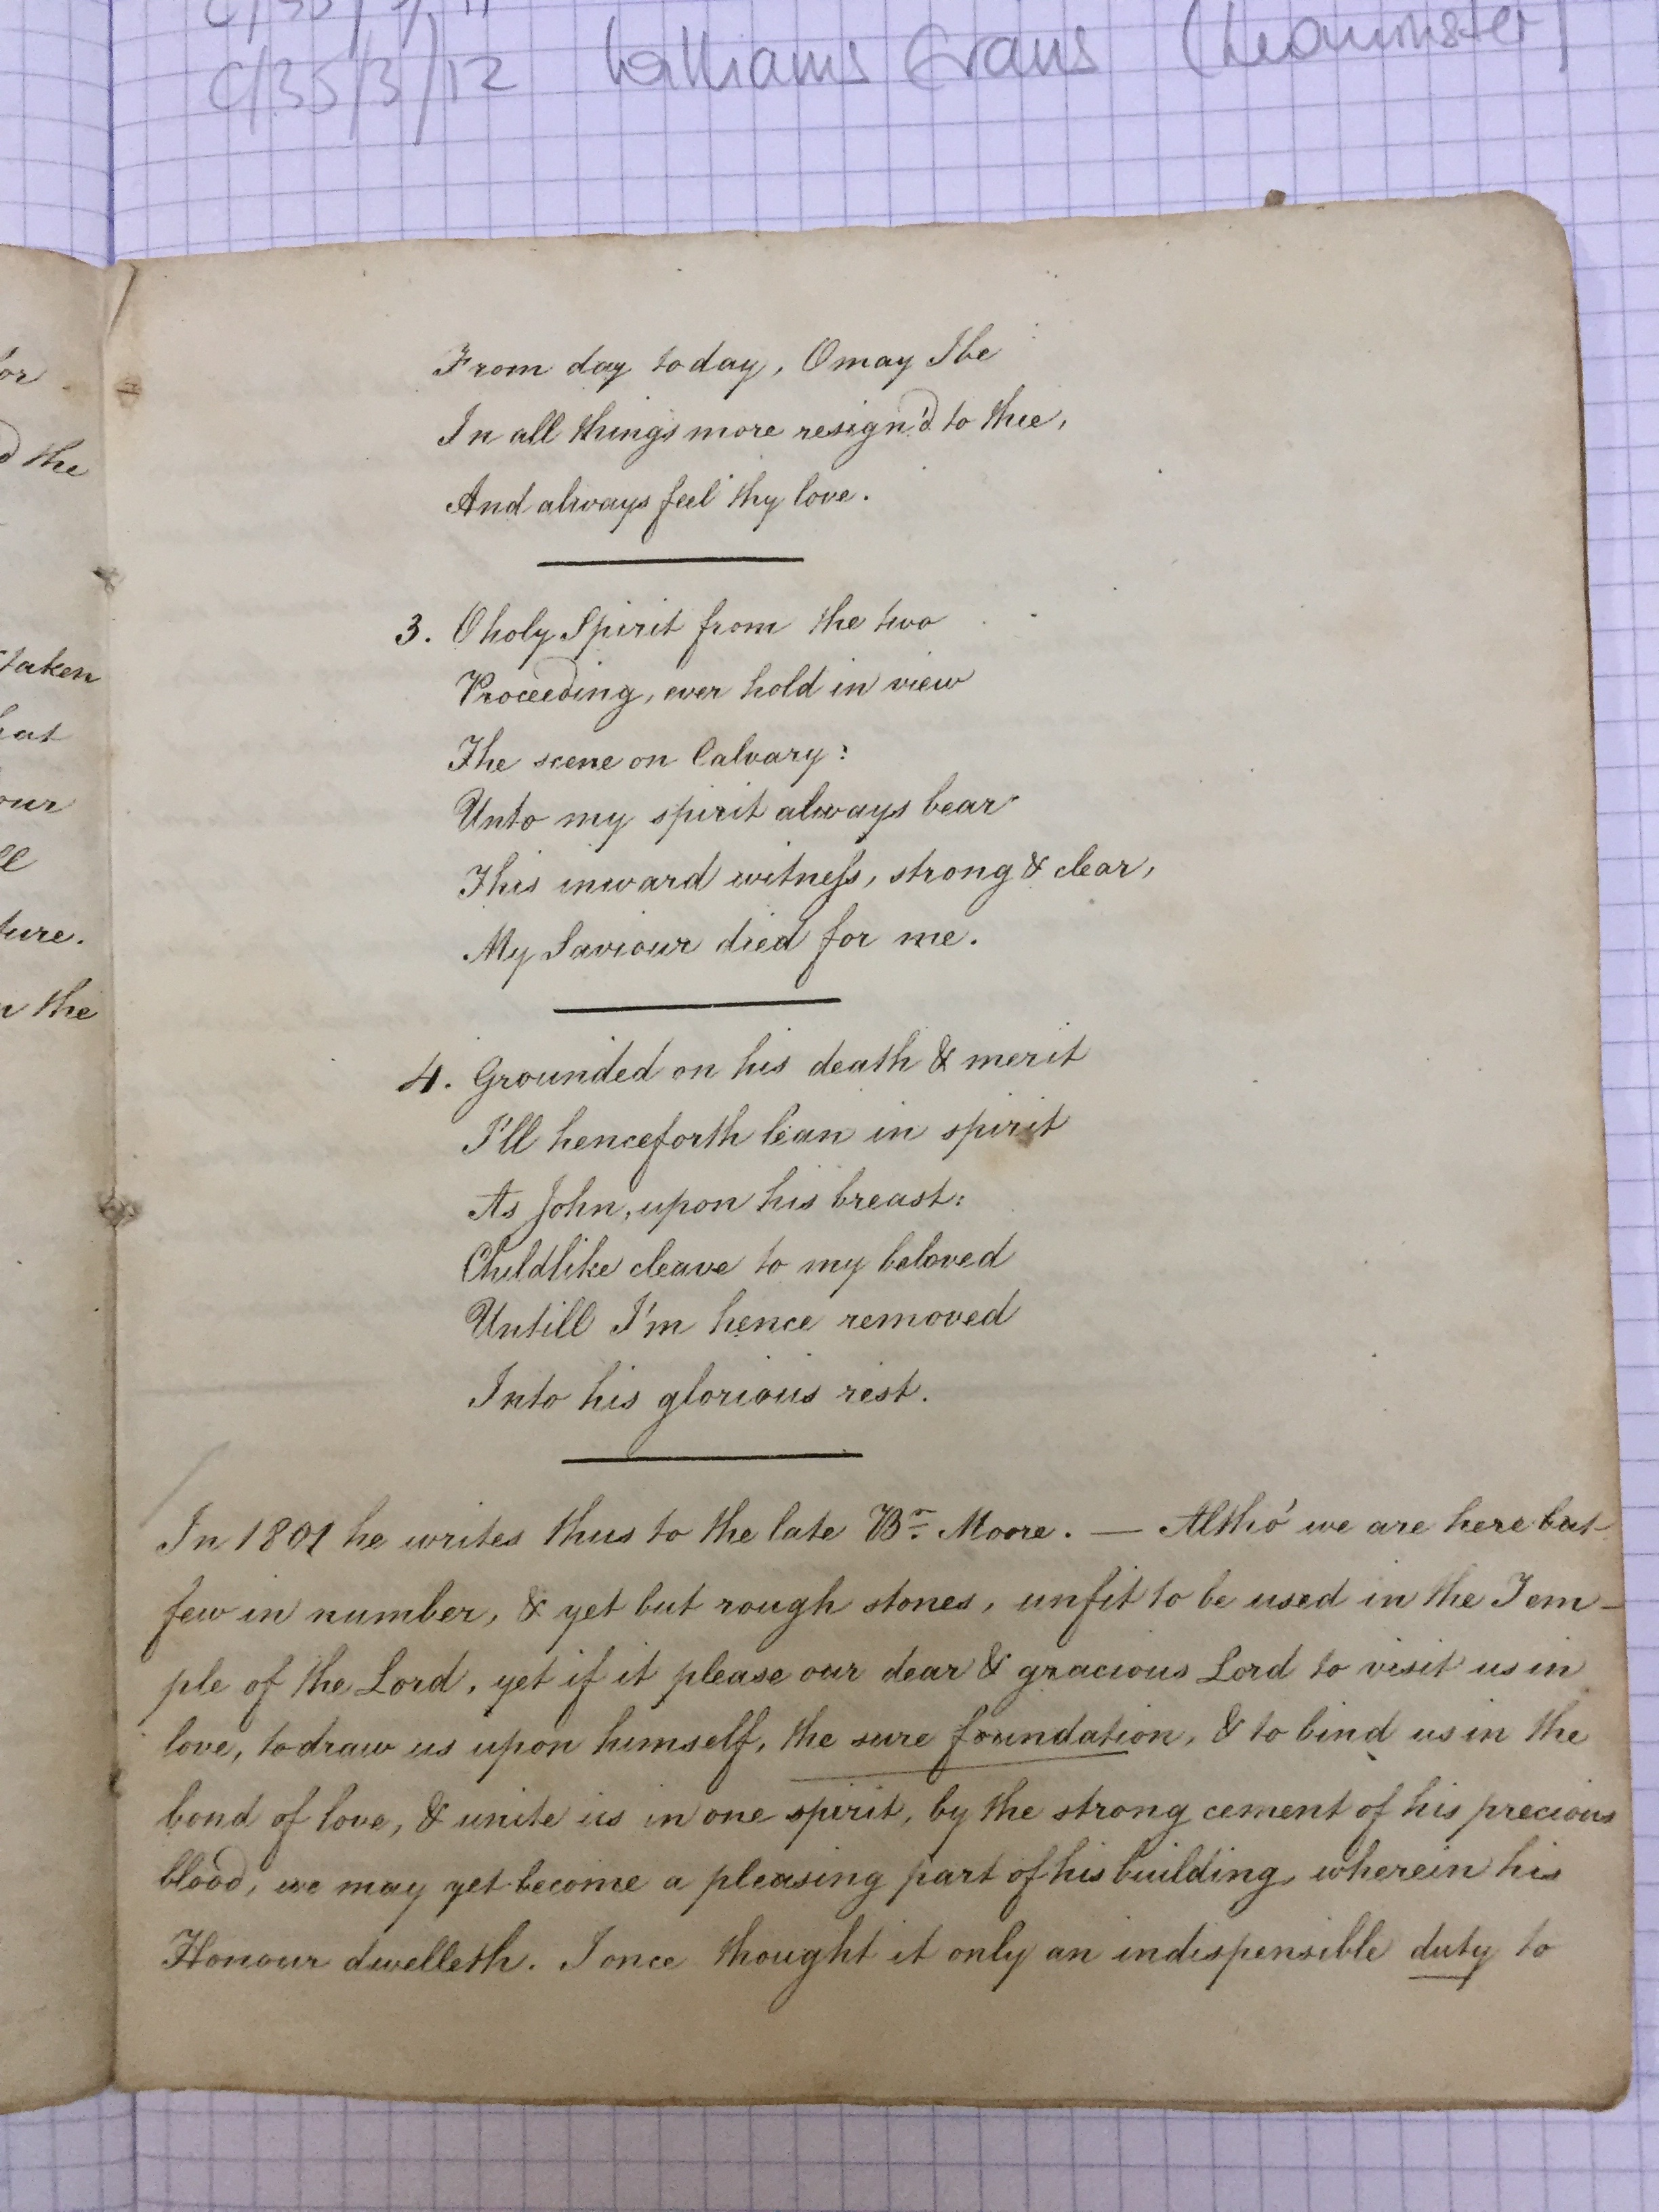 C/35/3/12 Williams Evans (Leominster)
or
d the
taken
hat
our
ll
ture.
n the
From day to day, O may I be
In all things more resign'd to thee,
And always feel thy love.
3. O holy Spirit from the two
Proceeding, ever hold in view
The scene on Calvary:
Unto my spirit always bear
This inward witness, strong & clear,
My Saviour died for me.
4. Grounded on his death & merit
I'll henceforth lean in spirit
As John, upon his breast:
Childlike cleave to my beloved
Untill I'm hence removed
Into his glorious rest.
In 1801 he writes thus to the late Br. Moore. — Altho' we are here but
few in number, & yet but rough stones, unfit to be used in the Tem-
ple of the Lord, yet if it please our dear & gracious Lord to visit us in
love, to draw us upon himself, the sure foundation, & to bind us in the
bond of love, & unite us in one spirit, by the strong cement of his precious
blood, we may yet become a pleasing part of his building, wherein his
Honour dwelleth. I once thought it only an indispensible duty to